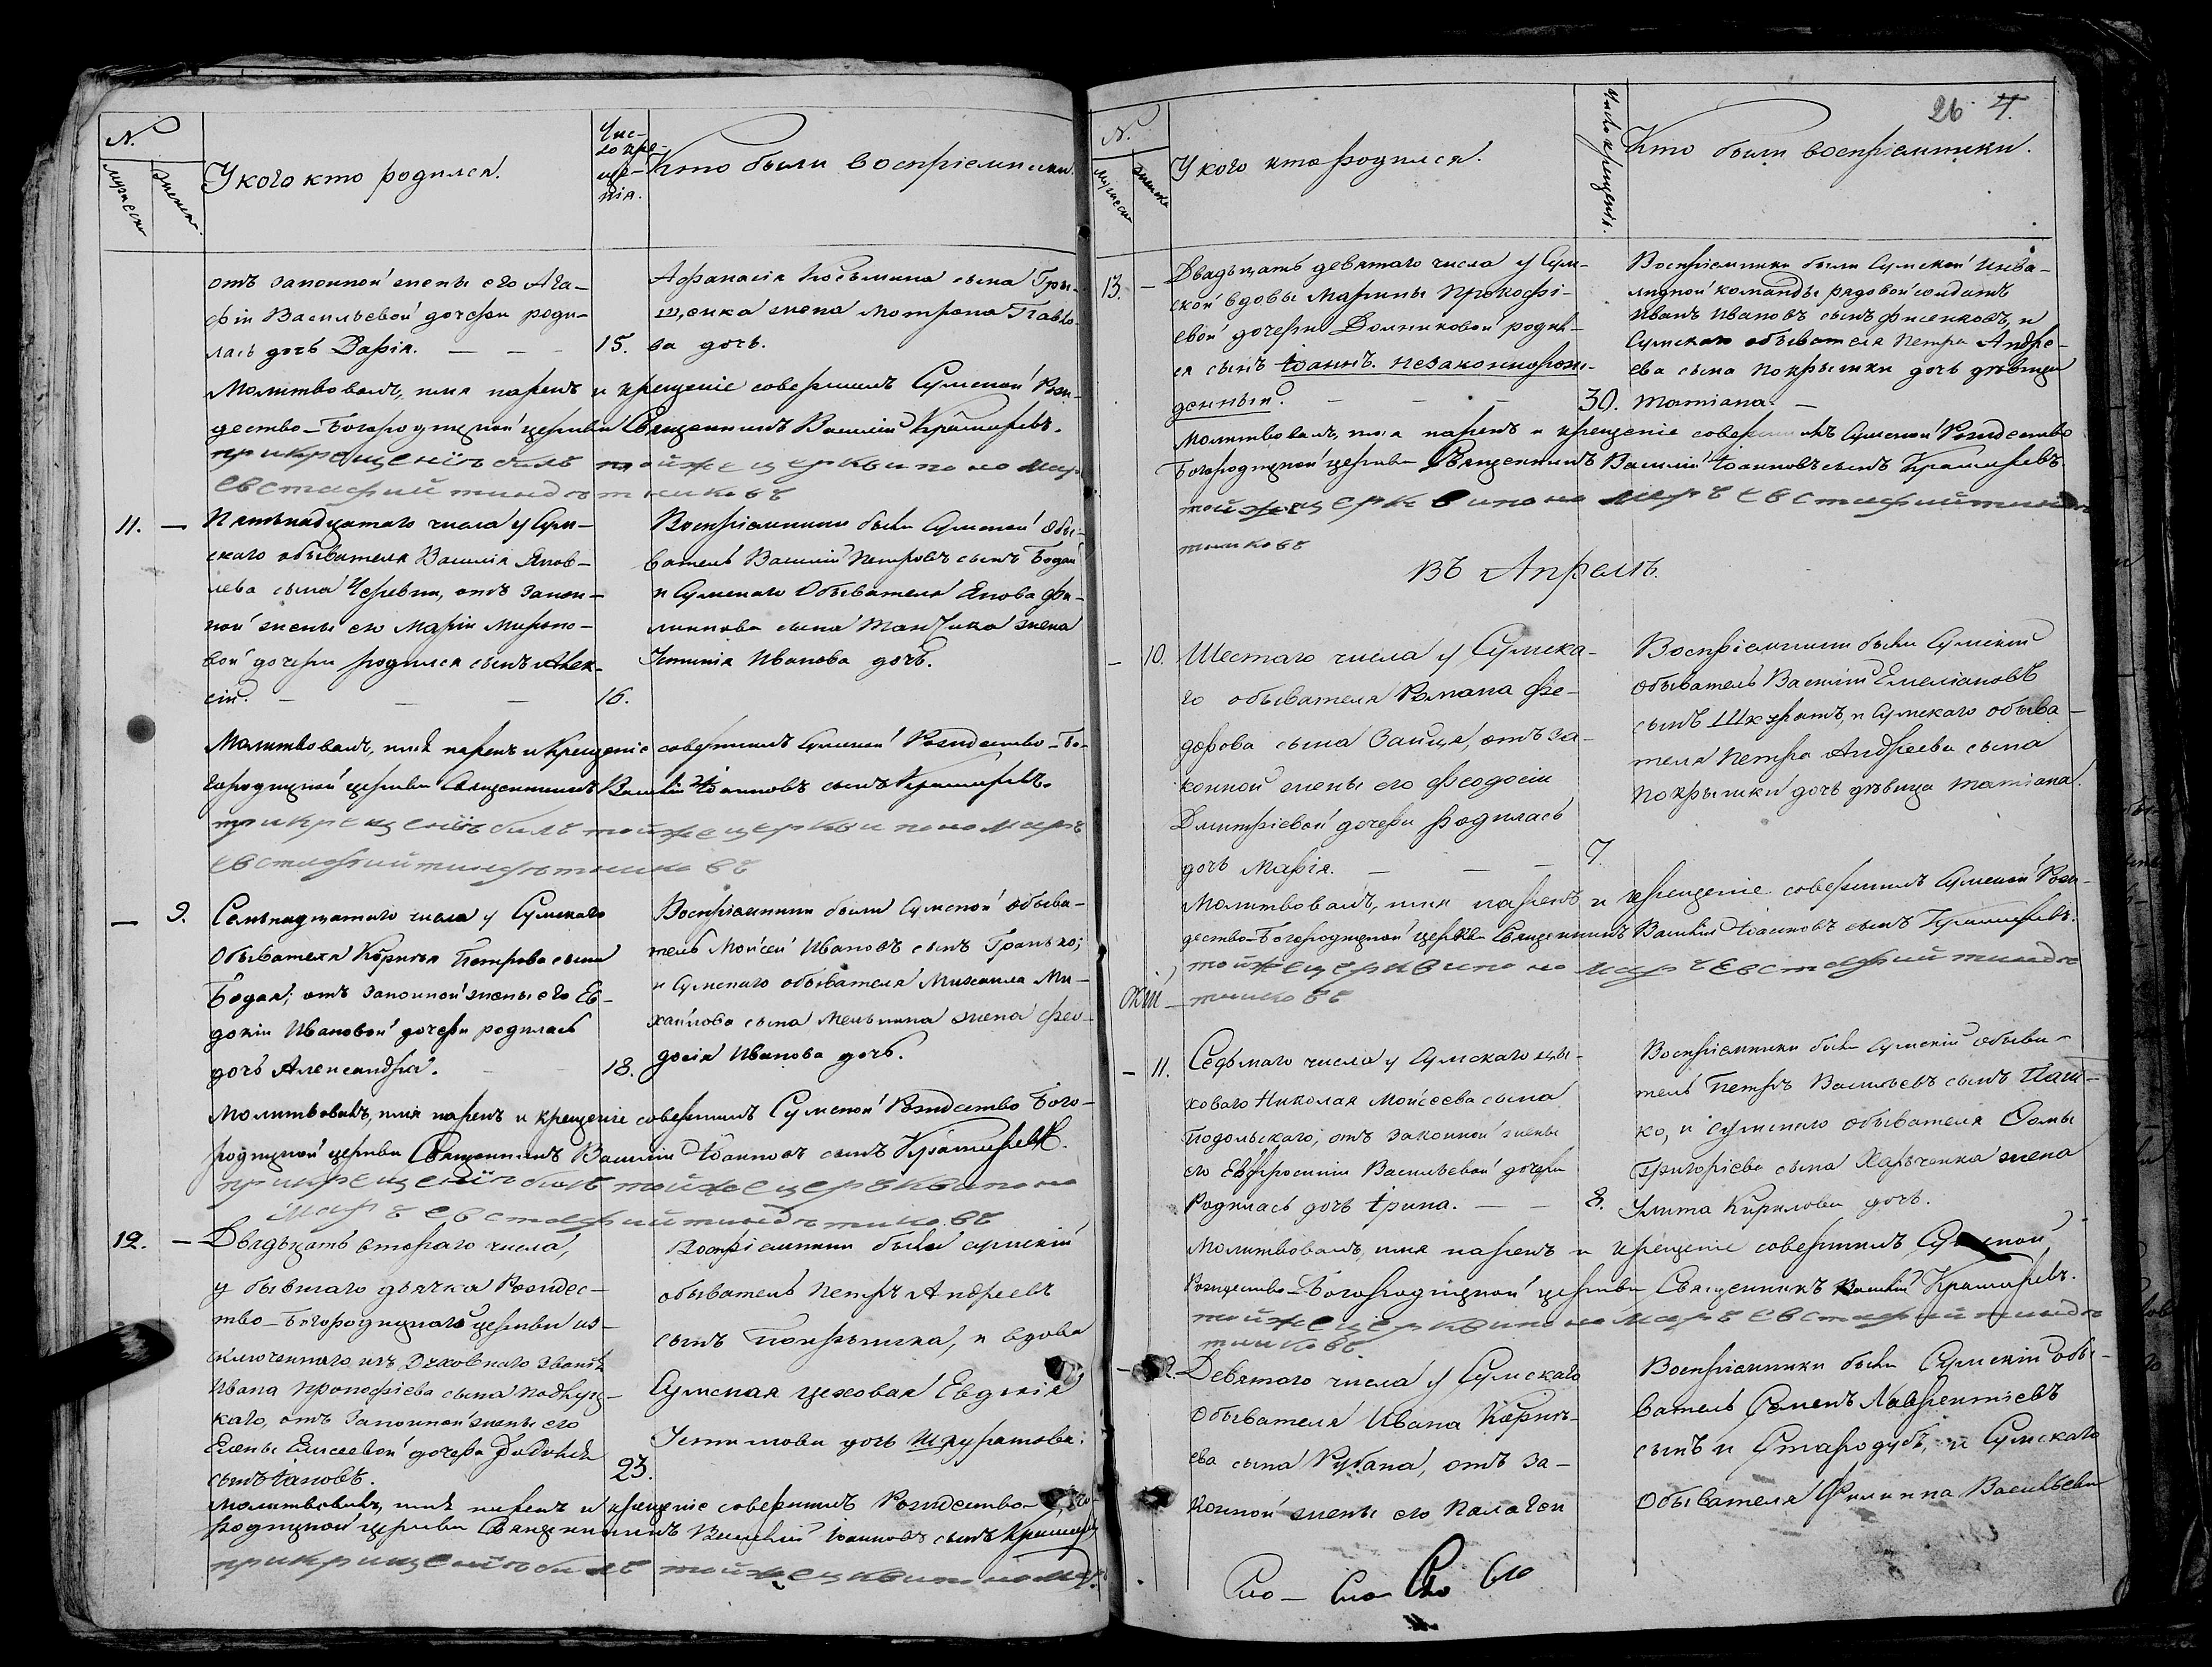 N.
мужеска
женска
У кого кто родился.
Чис-
ло кре-
ще-
нія.
Кто были воспріемники.
отъ законной жены его Ага-
фіи Васильевой дочери роди-
лась дочь Дарія. — — —
15.
Афанасія Косьмина сына Гри-
щенка жена Матрона Павло-
ва дочь.
Молитвовалъ, имя нарекъ и крещеніе совершилъ Сумской Рож-
дество-Богородичной церкви Священникъ Василій Крамаревъ.
при крещеніи былъ тойже церкви пономарь
Евстафий
11. —
Пятьнадцатаго числа у Сум-
скаго обывателя Василія Яков-
лева сына Черевки, отъ закон-
ной жены его Маріи Мироно-
вой дочери родился сынъ Алек-
сій. — — —
16.
Воспріемники были Сумской обы-
ватель Василій Петровъ сынъ Бодай
и Сумскаго Обывателя Якова Фи-
липпова сына жена
Иванова дочь.
Молитвовалъ, имя нарекъ и Крещеніе совершилъ Сумской Рождество-Бо-
городичной церкви Священникъ Василій Іоанновъ сынъ Крамаревъ.
при крещеніи былъ тойже церкви пономарь
Евстафий
— 9.
Семьнадцатаго числа у Сумскаго
Обывателя Корнилія Петрова сына
Бодая; отъ законной жены его Ев-
докіи Ивановой дочери родилась
дочь Александра.
18.
Воспріемники были Сумской обыва-
тель Моисей Ивановъ сынъ Гранько;
и Сумскаго обывателя Михаила Ми-
хайлова сына Мельника жена Фео-
досія Иванова дочь.
Молитвовалъ, имя нарекъ и крещеніе совершилъ Сумской Рождество Бого-
родичной церкви Священникъ Василій Іоанновъ сынъ Крамаревъ.
при крещеніи былъ тойже церькви поно
марь Евстафий
12. —
Двадцать втораго числа,
у бывшаго дьячка Рождес-
тво-Богородичной церкви ис-
ключеннаго изъ Духовнаго званія
Ивана Прокофіева сына
каго, отъ Законной жены его
Елены Елисеевой дочери родился
сынъ Іаковъ.
23.
Воспріемники были Сумскій
обыватель Петръ Андреевъ
сынъ Покрышка, и вдова
Сумская цеховая Евдокія
Устимова дочь Шкуратова.
Молитвовалъ, имя нарекъ и крещеніе совершилъ Рождество-Бого-
родичной церкви Священникъ Василій Іоанновъ сынъ Крамаревъ
при крищеніи былъ тойже церкви пономарь
26 4.
N.
мужеска
женска
У кого кто родился.
Число крещенія.
Кто были воспріемники.
13. —
Двадцать девятаго числа у Сум-
ской вдовы Марины Прокофі-
евой дочери Домниковой родил-
ся сынъ Іоаннъ. незаконнорож-
денный. — — —
30.
Воспріемники были Сумской Инва-
лидной команды рядовой солдатъ
Иванъ Ивановъ сынъ Фисенковъ, и
Сумскаго обывателя Петра Андре-
ева сына Покрышки дочь дѣвица
Татіана. —
Молитвовалъ, имя нарекъ и крещеніе совершилъ Сумской Рождество
Богородичной церкви Священникъ Василій Іоанновъ сынъ Крамаревъ.
тойже церкви пономарь Евстафий
Въ Апрелѣ.
— 10.
Шестаго числа у Сумска-
го обывателя Романа Фе-
дорова сына Зайца, отъ за-
конной жены его Феодосіи
Дмитріевой дочери родилась
дочь Марія. — — —
7.
Воспріемники были Сумскій
Обыватель Василій Емеліановъ
сынъ Шкуратъ, и Сумскаго обыва-
теля Петра Андреева сына
Покрышки дочь дѣвица Татіана.
Молитвовалъ, имя нарекъ и крещеніе совершилъ Сумской Рож-
дество-Богородичной церкви Священникъ Василій Іоанновъ сынъ Крамаревъ.
тойже церкви пономарь Евстафий
— 11.
Седьмаго числа у Сумскаго це-
ховаго Николая Моисеева сына
Подольскаго, отъ законной жены
его Евфросиніи Васильевой дочери
Родилась дочь Ірина. — —
8.
Воспріемники были Сумскій обыва-
тель Петръ Васильевъ сынъ Паш-
ко, и сумскаго обывателя Фомы
Григоріева сына Харченка жена
Улита Кирилова дочь.
Молитвовалъ, имя нарекъ и крещеніе совершилъ Сумской
Рождество-Богородичной церкви Священникъ Василій Крамаревъ.
тойже церкви пономарь Евстафий
Девятаго числа у Сумскаго
Обывателя Ивана Корнѣ-
ева сына Рубана, отъ за-
конной жены его Палагеи
Воспріемники были Сумскій обы-
ватель Семенъ Лаврентіевъ
сынъ и Стародубъ, и Сумскаго
Обывателя Филиппа Васильева